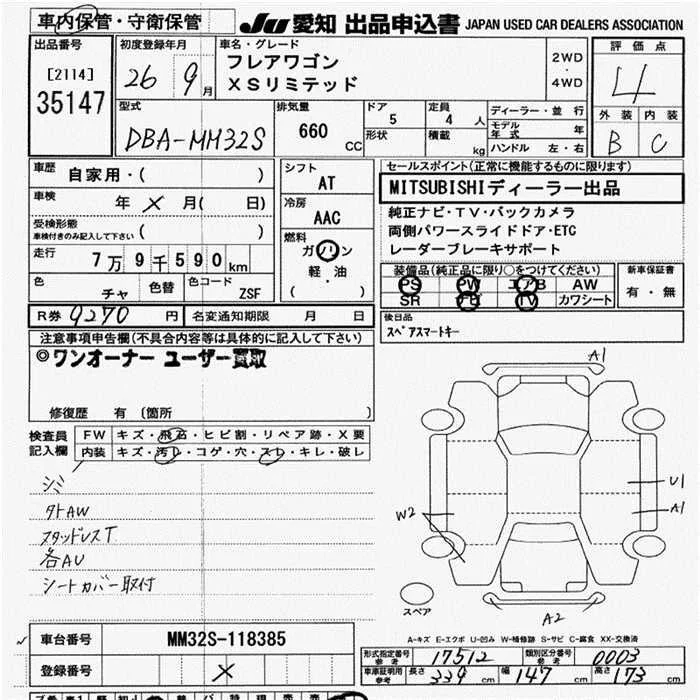 車内保管・守衛保管
JU 愛知 出品申込書 JAPAN USED CAR DEALERS ASSOCIATION
出品番号
[2114]
35147
初度登録年月
26 9月
車名・グレード
フレアワゴン
XSリミテッド
2WD
・
4WD
評価点
4
外装 内装
B C
型式
DBA-MM32S
排気量
660
CC
ドア
5
定員
4 人
形状
積載
kg
ディーラー・並行
モデル年式 年
ハンドル 左・右
車歴
自家用・( )
車検
年 × 月( 日)
受検形態
車検付きのみ記入して下さい ( )
走行
7万9千590km
色
チャ
色替
色コード
ZSF
シフト
AT
冷房
AAC
燃料
ガソリン
・
軽・油
( )
セールスポイント(正常に機能するものに限ります)
MITSUBISHIディーラー出品
純正ナビ・TV・バックカメラ
両側パワースライドドア・ETC
レーダーブレーキサポート
装備品(純正品に限り○をつけてください)
PS PW エアB AW
SR ナビ TV カワシート
新車保証書
有・無
R券 9270 円
名変通知期限 月 日
後日品
スペアスマートキー
注意事項申告欄(不具合内容等は具体的に記入して下さい)
◎ワンオーナー ユーザー買取
修復歴 有 (箇所 )
検査員
記入欄
FW キズ・飛石・ヒビ割・リペア跡・X要
内装 キズ・汚レ・コゲ・穴・スレ・キレ・破レ
シミ
外AW
スタッドレスT
各AU
シートカバー取付
A1
U1
A1
W2
スペア
A2
A-キズ E-エクボ U-凹み W-補修跡 S-サビ C-腐食 XX-交換済
車台番号
MM32S-118385
登録番号
×
形式指定番号
参考
17512
類別区分番号
参考
0003
車検証用
参考
長さ 339 cm
幅 147 cm
高さ 173 cm